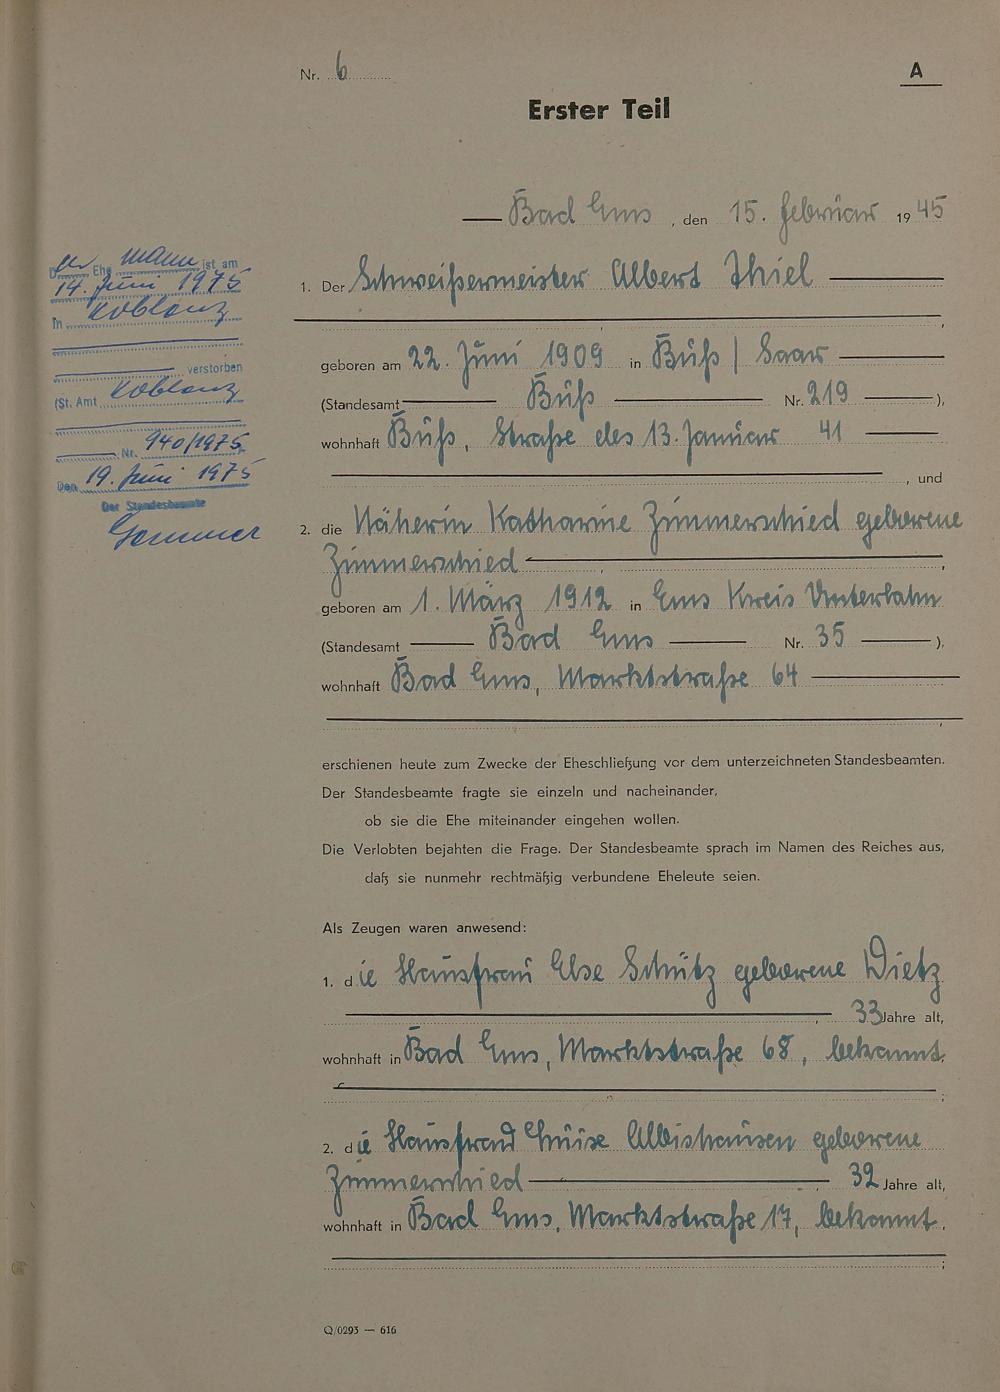 Nr. 6
A
Erster Teil
Bad Ems, den 15. Februar 1945
Der Ehemann ist am
14. Juni 1975
in Koblenz
verstorben
(St. Amt Koblenz
Nr. 940/1975
Den 19. Juni 1975
Der Standesbeamte
1. Der Schweißermeister Albert Thiel
,
geboren am 22. Juni 1909 in Büß / Saar
(Standesamt Büß Nr. 219 ),
wohnhaft Büß, Straße des 13. Januar 41
, und
2. die Näherin Katharine Zimmerschied geborene
Zimmerschied ,
geboren am 1. März 1912 in Ems Kreis Unterlahn
(Standesamt Bad Ems Nr. 35 ),
wohnhaft Bad Ems, Marktstraße 64
,
erschienen heute zum Zwecke der Eheschließung vor dem unterzeichneten Standesbeamten.
Der Standesbeamte fragte sie einzeln und nacheinander,
ob sie die Ehe miteinander eingehen wollen.
Die Verlobten bejahten die Frage. Der Standesbeamte sprach im Namen des Reiches aus,
daß sie nunmehr rechtmäßig verbundene Eheleute seien.
Als Zeugen waren anwesend:
1. die Hausfrau Else Schütz geborene Dietz
, 33 Jahre alt,
wohnhaft in Bad Ems, Marktstraße 68, bekannt,
;
2. die Hausfrau Luise Albishausen geborene
Zimmerschied , 32 Jahre alt,
wohnhaft in Bad Ems, Marktstraße 17, bekannt.
;
Q/0293 — 616